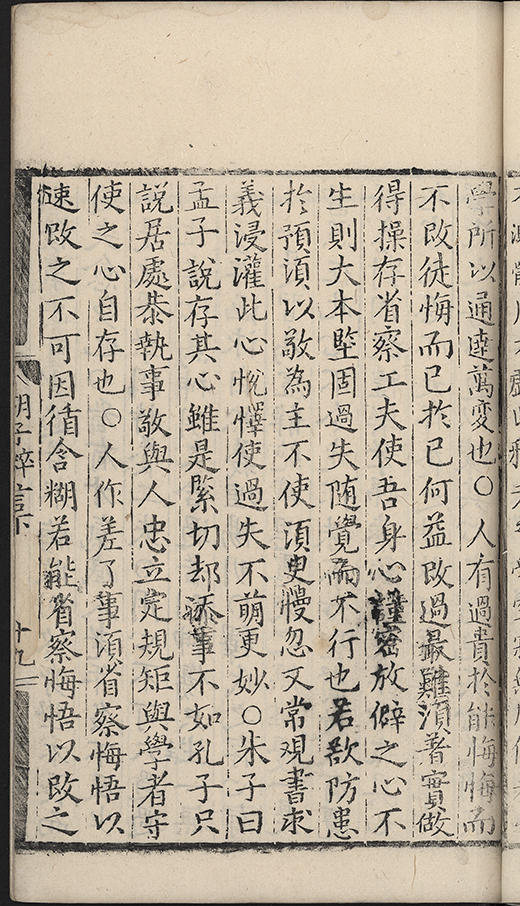 學所以通達萬変也○人有過貴扵能悔悔而
不改徒悔而已扵已何益改過最難湏着實做
得操存省察工夫使吾身心謹密放僻之心不
生則大本堅固過失随覺而不行也若欲防患
扵預湏以敬為主不使湏臾慢忽又常观書求
義浸灌此心恱懌使過失不萌更妙○朱子曰
孟子說存其心雖是緊切却添事不如孔子只
說居處恭執事敬與人忠立定規矩與學者守
使之心自存也○人作差了事湏省察悔悟以
速改之不可因循含糊若能省察悔悟以改之
胡子粹言下
十九